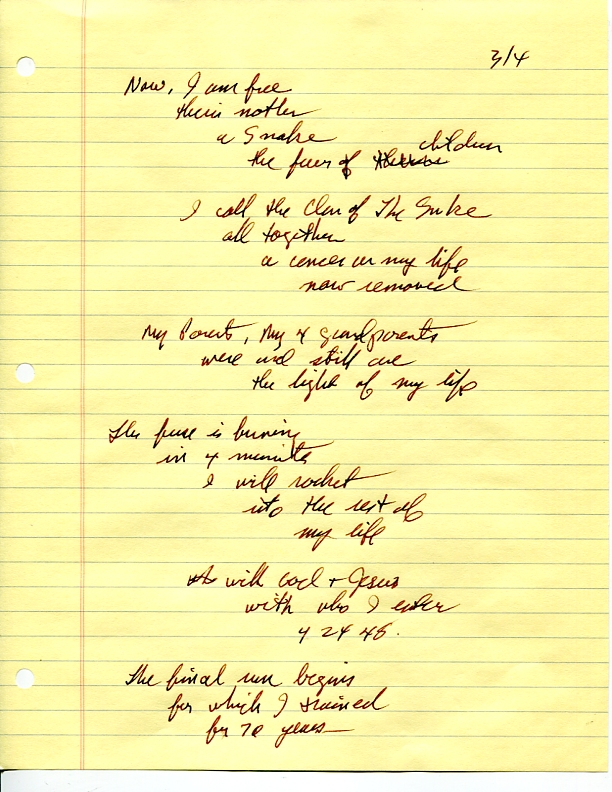 3/4
Now, I am free
their mother
a Snake
the four of children
I call the Clan of The Snake
all together
a cancer on my life
now removed
My Parents, My 4 grandparents
were and still are
the light of my life
The fuse is burning
in 4 minutes
I will rocket
into the rest of
my life
with God + Jesus
with who I enter
4 24 45.
The final run begins
for which I trained
for 70 years—